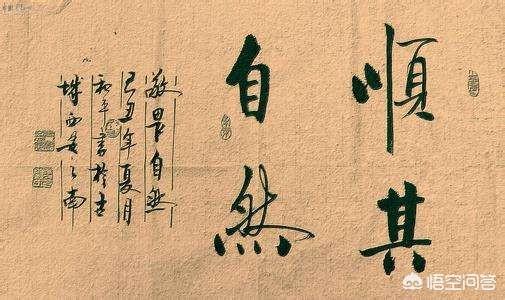 順其
自然
敬畏自然
己丑年夏月
和平書於古
城西安之南
悟空问答